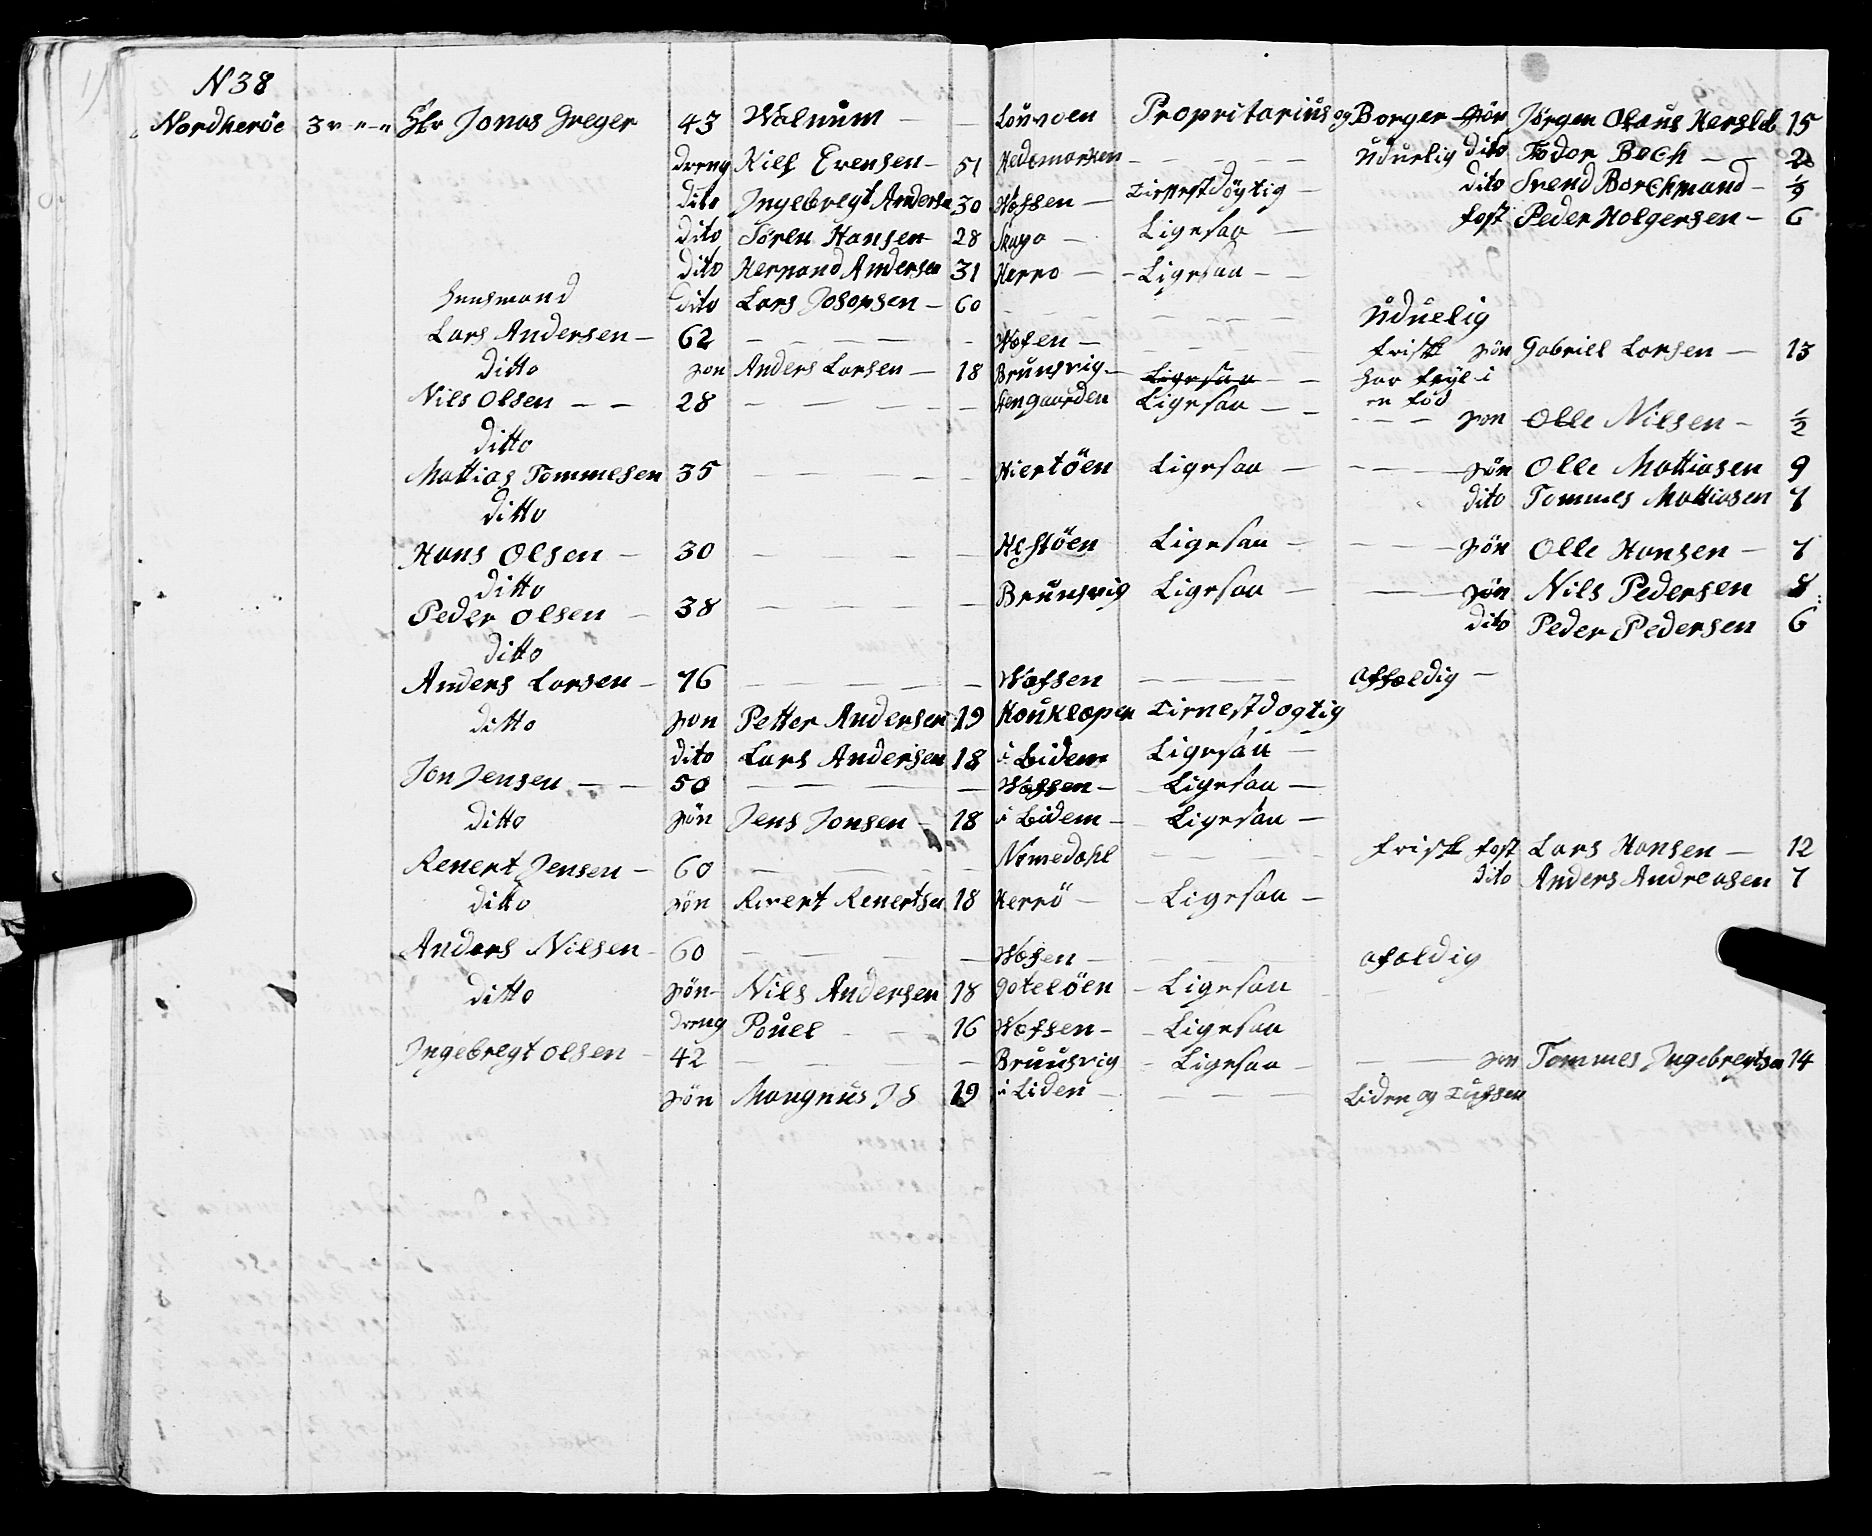 N 38
Nordheröe 3 v " - " Hr Jonas Greger 43 Walnum - - Löuvoen Propritarius og Borger sön Jörgen Olaus Hersleb 15
dreng Kiel Evensen - 51 Hedemarken - - - - - uduelig dito Fodor Bech - - 2
dito Ingebregt Andersen 30 Wefsen - Tienestdögtig - dito Svend Borchmand - 1/9
dito Sören Hansen 28 Ligesaa - fost Peder Holgersen - 6
dito Hernand Andersen 31 Herro - - Ligesaa - -
Huusmand dito Lars Josepsen - 60 - - - - uduelig
Lars Andersen - 62 - - - - - Wefsen - - - - frisk sön Gabriel Larsen - 13
ditto sön Anders Larsen - 18 Brunsvig - Ligesaa - - har feyl i
Nils Olsen - - 28 - - - - Stengaarden Ligesaa - - en fod
ditto - - - sön Olle Nilsen - 1/2
Mattias Tommesen 35 - - - - - Hiertöen Ligesaa - - - sön Olle Mattiasen 9
ditto dito Tommes Mattiasen 7
Hans Olsen - 30 - - - - Hestöen Ligesaa - - - sön Olle Hansen - 7
ditto
Peder Olsen - 38 - - - - Brunsvig Ligesaa - - sön Nils Pedersen 8
ditto dito Peder Pedersen 6
Anders Larsen - 76 - - - - - Wefsen - - - - affeldig -
ditto sön Petter Andersen 19 Houklopen Tienestdogtig
dito Lars Andersen 18 i Lidem Ligesaa -
Jon Jensen - - 50 - - - - Wefsen - - Ligesaa -
ditto sön Jens Jonsen - 18 i Lidem - Ligesaa -
Renert Jensen - 60 - - - - Nomedahl - - - frisk fost Lars Hansen - 12
dito Anders Andreasen 7
ditto sön Renert Renertsen 18 Herrö - - Ligesaa -
Anders Nilsen - 60 - - - - Wefsen - - - - afeldig
ditto sön - Nils Andersen 18 - Ligesaa
dreng Pouel - - 16 Wefsen - - Ligesaa
Ingebregt Olsen - 42 - - - Brunsvig - Ligesaa - - sön Tommes Ingebregtsen 14
sön Mangnus J S 19 i Liden - - - - Liden og